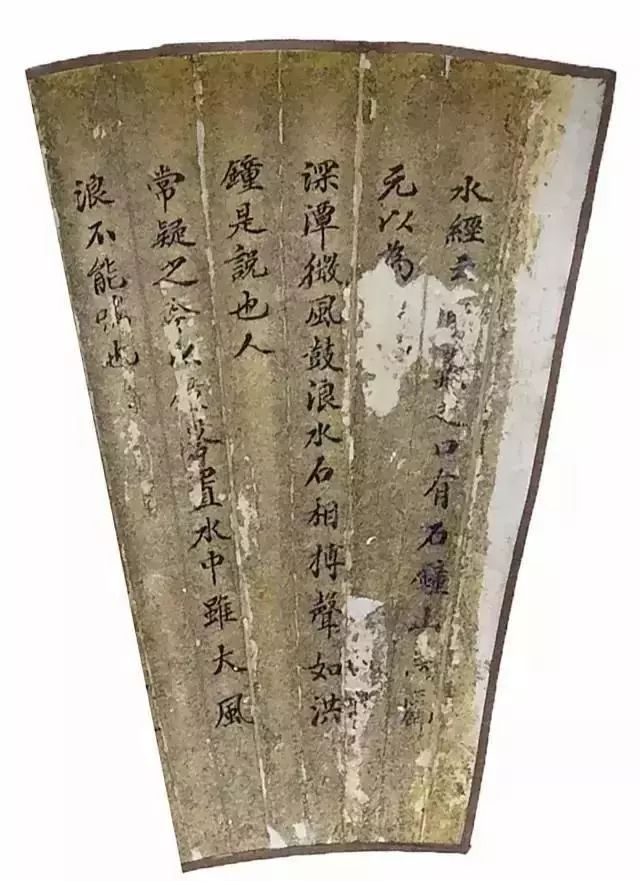 水經云之口有石鐘山
元以為
深潭微風鼓浪水石相搏聲如洪
鐘是說也人
常疑之今以磬置水中雖大風
浪不能鳴也